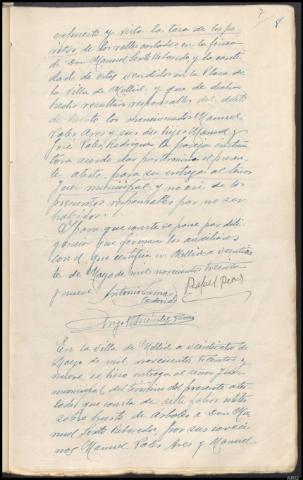 expuesto y vista la tasa de los pe-
ritos, de los robles cortados en la finca
de Don Manuel Seoto Reboredo y la canti-
dad de estos vendidos en la Plaza de
la Villa de Mellid, y que de dicho
hecho resultan responsables del delito
de hurto los mencionados Manuel
Pales Ares y sus dos hijos Manuel y
José Pales Rodriguez la pareja instruc-
tora acordó dar por terminado el presen-
te atestado para su entrega al Señor
Juez municipal, y no así de los
presuntos responsables por no ser
habidos.
Y para que conste se pone por dili-
gencia que firman los auxiliares
con el que certifica en Mellid a veintisie-
te de Mayo de mil novecientos treinta
y nueve.
En la villa de Mellid a veintisiete de
Mayo de mil novecientos treinta y
nueve, se hizo entrega al Señor Juez
municipal del término del presente ates-
tado, que consta de siete folios útiles
sobre hurto de árboles a Don Ma-
nuel Seoto Reboredo, por sus conveci-
nos Manuel Pales Ares y Manuel